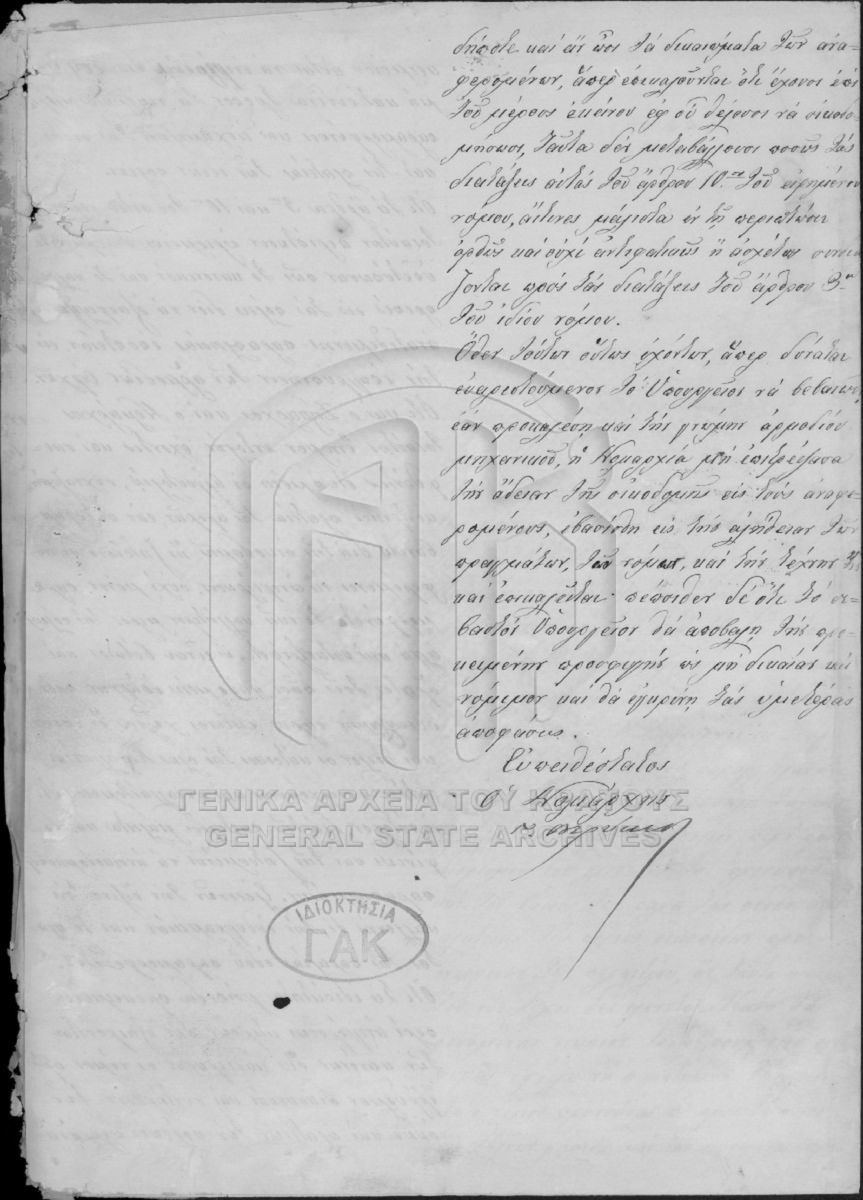 δήποτε καὶ ἂν ὦσι τὰ δικαιώματα τῶν ἀνα-
φερομένων, ἅπερ ἐπικαλοῦνται ὅτι ἔχουσι ἐπὶ
τοῦ μέρους ἐκείνου ἐφ οὗ θέλουσι νὰ οἰκοδο-
μήσωσι, ταῦτα δὲν μεταβάλλουσι ποσῶς τὰς
διατάξεις αὐτὰς τοῦ ἄρθρου 10. τοῦ εἰρημένου
νόμου, αἵτινες μάλιστα ἐν τῇ περιπτώσει
ὀρθῶς καὶ οὐχὶ ἀντιφατικῶς ἢ ἀσχέτως
ζονται πρὸς τὰς διατάξεις τοῦ ἄρθρου 3
τοῦ ἰδίου νόμου.
Ὅθεν τούτων οὕτως ἐχόντων, ἅπερ δύναται
εὐαρεστούμενον τὸ Ὑπουργεῖον νὰ βεβαιώσῃ
ἐὰν προκαλέσῃ καὶ τὴν γνώμην ἁρμοδίου
μηχανικοῦ, ἡ Νομαρχία μὴ ἐπιτρέψασα
τὴν ἄδειαν τῆς οἰκοδομῆς εἰς τοὺς ἀναφε-
ρομένους, ἐβασίσθη εἰς τὴν ἀλήθειαν τῶν
πραγμάτων, τὸν νόμον, καὶ τὴν τέχνην
καὶ ἐπικαλεῖται· πέποιθεν δὲ ὅτι τὸ σε-
βαστὸν Ὑπουργεῖον θὰ ἀποβάλῃ τὴν προ-
κειμένην προσφυγὴν ὡς μὴ δικαίας καὶ
νόμιμον καὶ θὰ ἐγκρίνῃ τὰς ἡμετέρας
ἀποφάσεις.
Εὐπειθέστατος
Ὁ Νομάρχης
ΓΕΝΙΚΑ ΑΡΧΕΙΑ ΤΟΥ ΚΡΑΤΟΥΣ
GENERAL STATE ARCHIVES
ΙΔΙΟΚΤΗΣΙΑ
ΓΑΚ